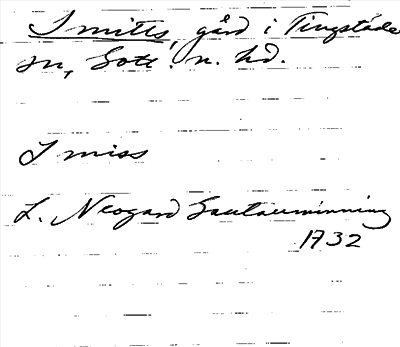 Smitts, gård i Tingstäde
sn, Gotl. n. hd.
I miss
L. Neogard Gautauminning
1732